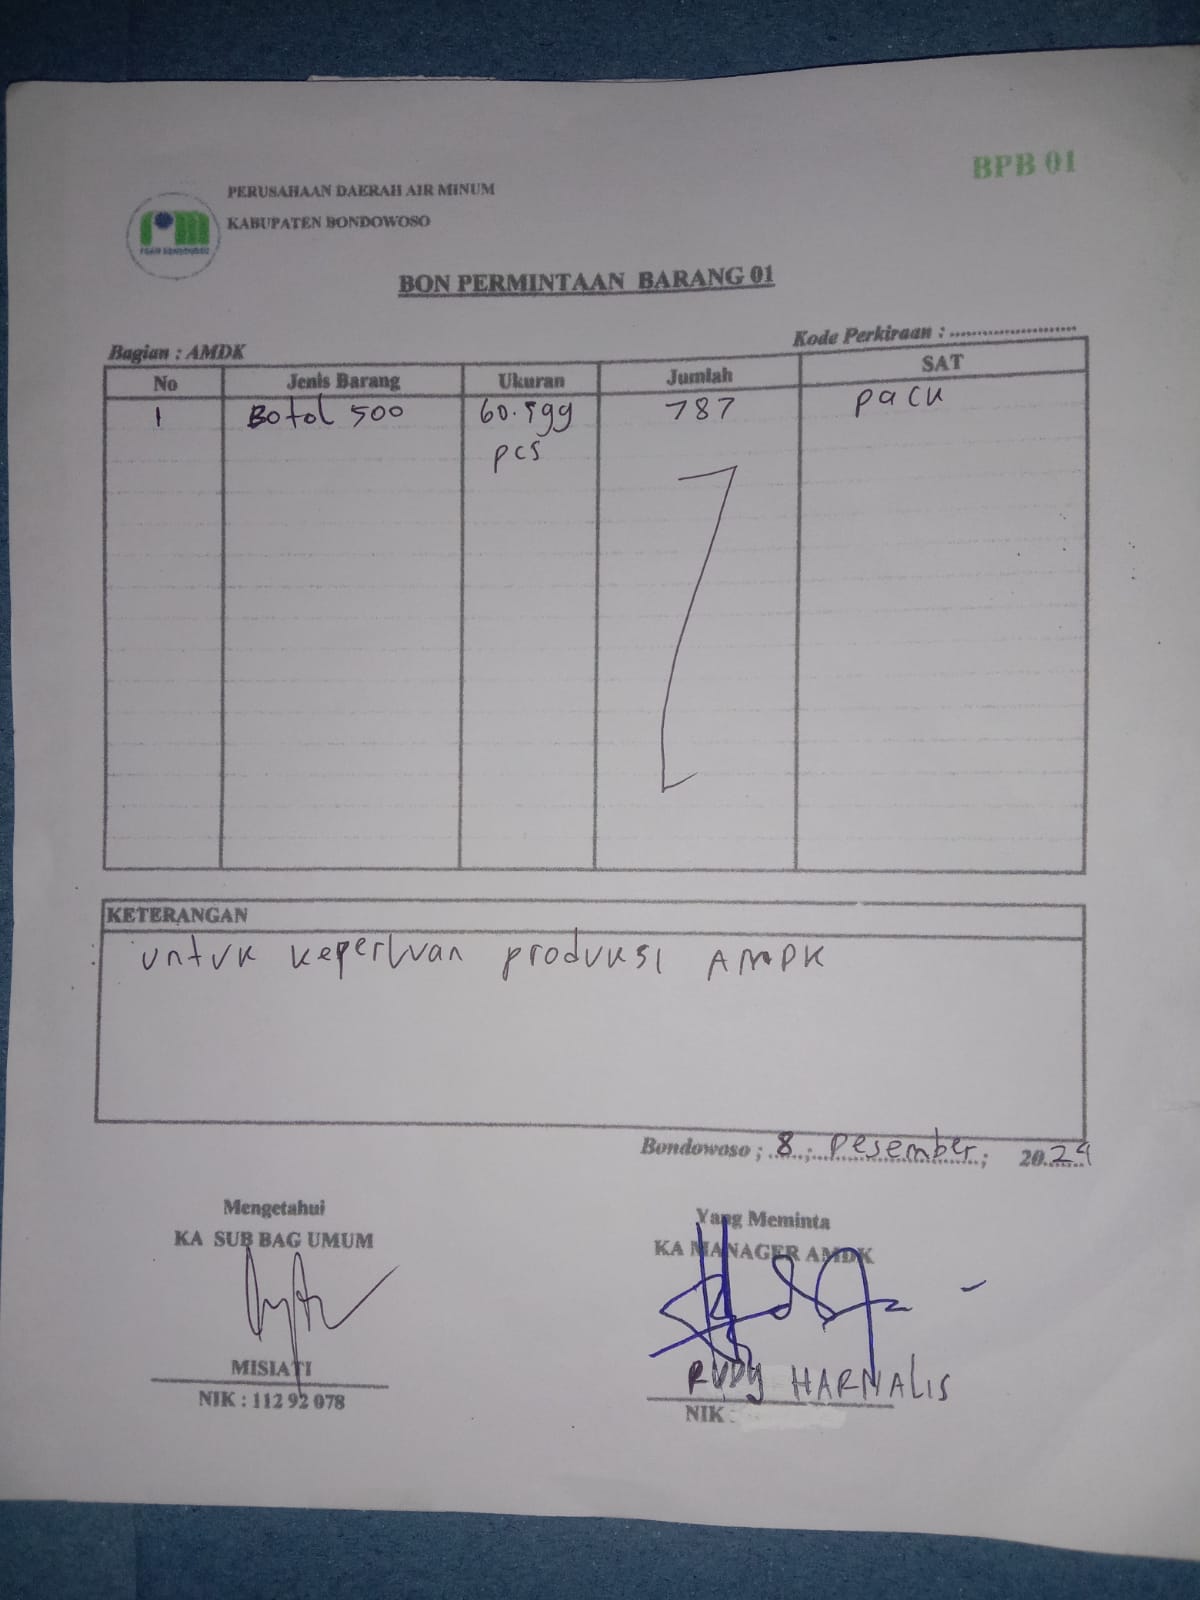 BPB 01
PERUSAHAAN DAERAH AIR MINUM
KABUPATEN BONDOWOSO
PDAM BONDOWOSO
BON PERMINTAAN BARANG 01
Bagian : AMDK
Kode Perkiraan : ........................
No Jenis Barang Ukuran Jumlah SAT
1 Botol 500 60.599 787 pack
pcs
KETERANGAN
untuk keperluan produksi AMDK
Bondowoso ; 8 ; Desember ; 2024
Mengetahui
KA SUB BAG UMUM
MISIATI
NIK : 112 92 078
Yang Meminta
KA MANAGER AMDK
RUDY HARNALIS
NIK